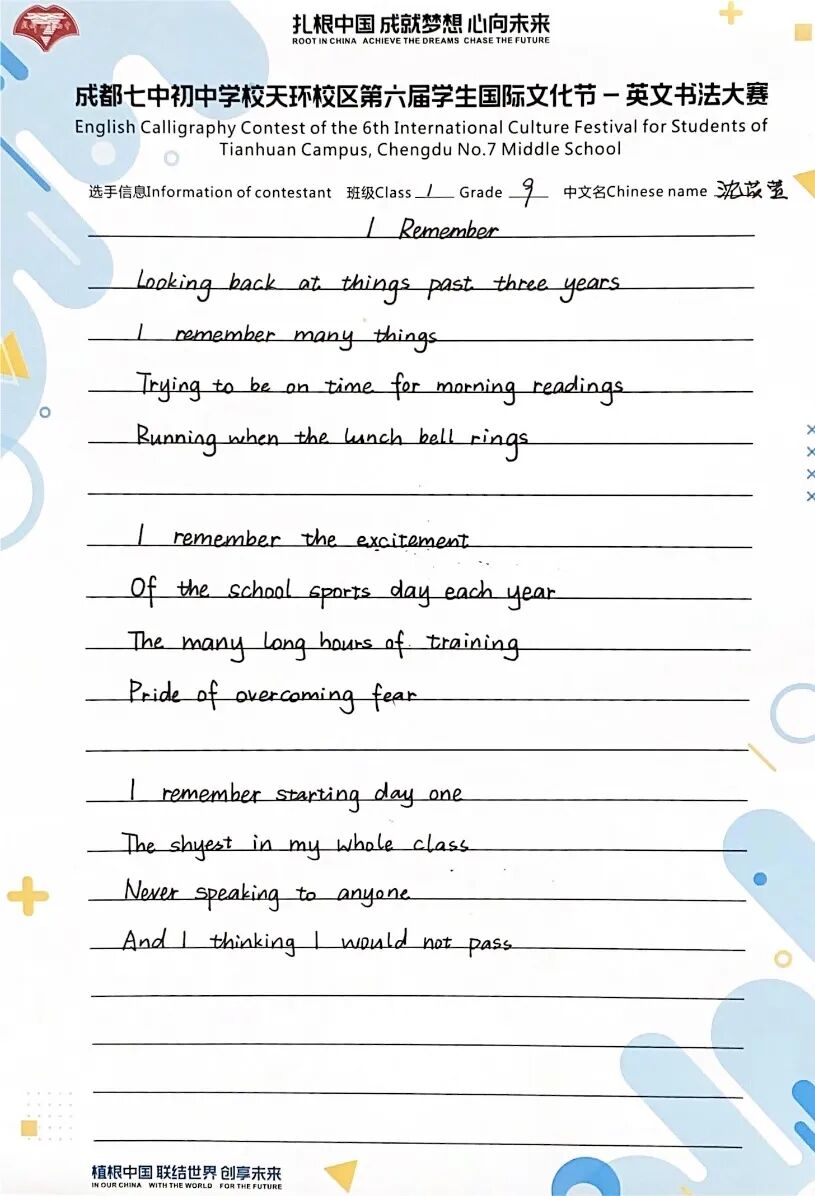 扎根中国 成就梦想 心向未来
ROOT IN CHINA ACHIEVE THE DREAMS CHASE THE FUTURE
成都七中初中学校天环校区第六届学生国际文化节－英文书法大赛
English Calligraphy Contest of the 6th International Culture Festival for Students of
Tianhuan Campus, Chengdu No.7 Middle School
选手信息Information of contestant 班级Class 1 Grade 9 中文名Chinese name 沈苡萱
I Remember
Looking back at things past three years
I remember many things
Trying to be on time for morning readings
Running when the lunch bell rings
I remember the excitement
Of the school sports day each year
The many long hours of training
Pride of overcoming fear
I remember starting day one
The shyest in my whole class
Never speaking to anyone
And I thinking I would not pass
植根中国 联结世界 创享未来
IN OUR CHINA WITH THE WORLD FOR THE FUTURE